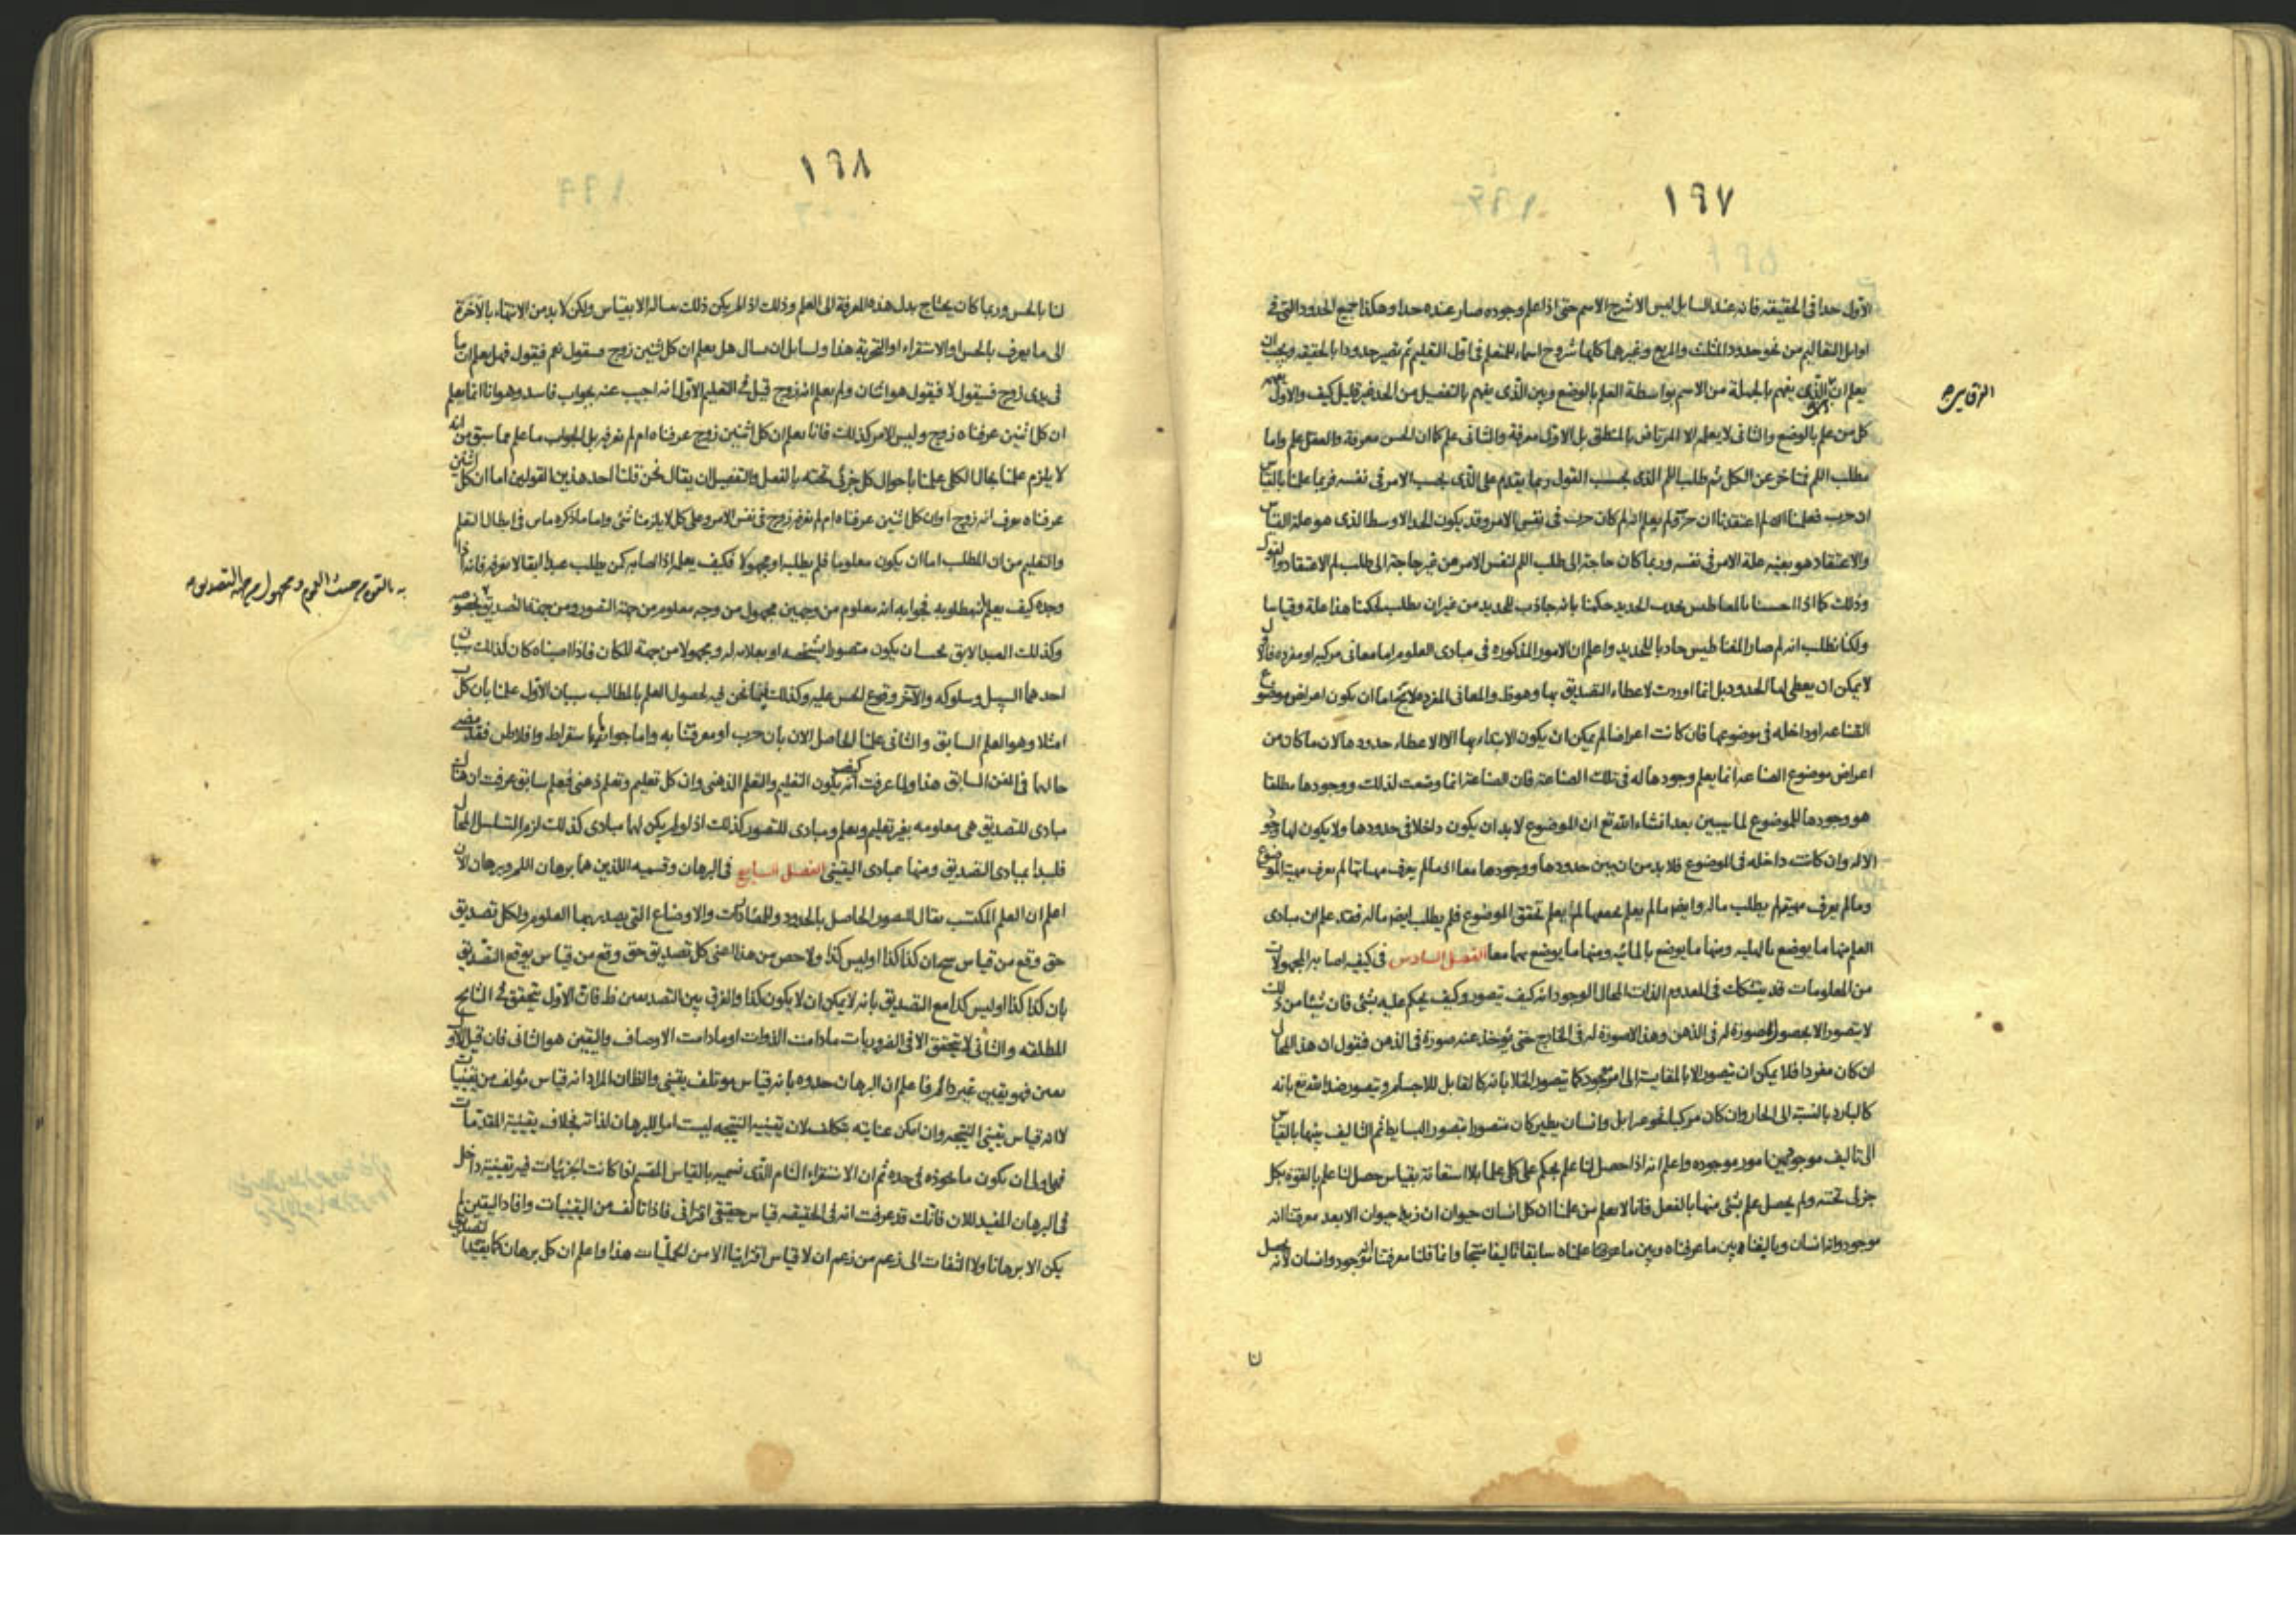 ١٩٧
الاول حدا فى الحقيقة فانه عند السايل ليس الا شرح الاسم حتى اذا علم وجوده صار عنده حدا وهكذا جميع الحدود التى فى
اوايل التعاليم من نحو حدود المثلث والمربع وغيرهما كلها شروح اسماء للمتعلم فى اول التعليم ثم تصير حدودا بالحقيقة ويجب ان
يعلم ان الذى يفهم بالجملة من الاسم بواسطة العلم بالوضع وبين الذى يفهم بالتفصيل من الحد غير قليل كيف والاول
كل من علم بالوضع والثانى لا يعلمه الا المرتاض بالمنطق بل الاول معرفة والثانى علم كما ان الحس معرفة والعقل علم واما
مطلب اللم فمتاخر عن الكل ثم طلب اللم الذى بحسب القول ربما يتقدم على الذى بحسب الامر فى نفسه فربما علمنا بالقياس
ان حرب فعلمنا انه لم اعتقدنا ان حرب ولم يعلم انه لم كان حرب فى نفس الامر وقد يكون الحد الاوسط الذى هو علة القياس
والاعتقاد هو بعينه علة الامر فى نفسه وربما كان حاجة الى طلب اللم لنفس الامر من غير حاجة الى طلب لم الاعتقاد والقول
وذلك كما اذا احسسنا بالمغناطيس يجذب الحديد حكمنا بانه جاذب للحديد من غير ان يطلب لحكمنا هذا علة وقياسا
ولكنا نطلب انه لم صار المغناطيس جاذبا للحديد واعلم ان الامور المذكوره فى مبادى العلوم اما معانى مركبه او مفرده فالاول
لا يمكن ان يعطى لها الحدود بل انما اوردت لاعطاء التصديق بها وهو ظ والمعانى المفرده لا يخ اما ان يكون اعراض موضوع
الصناعه او داخله فى موضوعها فان كانت اعراضا لم يمكن ان يكون الابتداء بها الا لاعطاء حدودها لان ما كان من
اعراض موضوع الصناعه انما يعلم وجودها له فى تلك الصناعة فان الصناعة انما وضعت لذلك ووجودها مطلقا
هو وجودها للموضوع لما سيبين بعد انشاء الله تع ان الموضوع لا بد ان يكون داخلا فى حدودها ولا يكون لها وجود
الا له وان كانت داخله فى الموضوع فلا بد من ان يبين حدودها ووجودها معا اذ ما لم يعرف مهياتها لم يعرف مهية الموضوع
وما لم يعرف مهيته لم يطلب ماله وايضا ما لم يعلم تحققها لم يعلم تحقق الموضوع فلم يطلب ايضا ماله فقد علم ان مبادى
العلم منها ما يوضع بالهليه ومنها ما يوضع بالمائيه ومنها ما يوضع بهما معا الفصل السادس فى كيفيه اصابه المجهولات
من المعلومات قد يتشكك فى المعدوم الذات المحال الوجود انه كيف تصور وكيف يحكم عليه بشئ فان شيئا من ذلك
لا يتصور الا بحصول صورة له فى الذهن وهذا لا صورة له فى الخارج حتى يؤخذ عنه صورة فى الذهن فنقول ان هذا المحال
ان كان مفردا فلا يمكن ان يتصور الا بالمقايسة الى الموجود كما يتصور الخلا بانه كالقابل للاجسام ويتصور ضد الله تع بانه
كالبارد بالنسبة الى الحار وان كان مركبا نحو عنز ايل وانسان يطير كان متصورا بتصور البسايط ثم التاليف بينها بالقياس
الى تاليف موجود بين امور موجوده واعلم انه اذا حصل لنا علم بحكم على كلى علما بلا استعانة بقياس حصل لنا علم بالقوة بكل
جزئى تحته ولم يحصل علم بشئ منها بالفعل فانا لا نعلم من علمنا ان كل انسان حيوان ان زيدا حيوان الا بعد معرفتنا انه
موجود وانه انسان وبالفينا بين ما عرفناه وبين ما علمناه سابقا تاليفا منتجا وانما قلنا معرفتنا انه موجود وانسان لانه يحصل
لنا
١٩٨
لنا بالحس وربما كان يحتاج بدل هذه المعرفة الى العلم وذلك اذا لم يكن ذلك يناله الا بقياس ولكن لا بد من الانتهاء بالآخرة
الى ما يعرف بالحس او الاستقراء او التجربة هذا ولسايل ان يسال هل يعلم ان كل اثنين زوج فسيقول نعم فيقول فهل يعلم ان ما
فى يدى زوج فسيقول لا فيقول هو اثنان ولم يعلم انه زوج قيل فى التعليم الاول انه اجيب عنه بجواب فاسد وهو انا انما نعلم
ان كل اثنين عرفناه زوج وليس الامر كذلك فانا نعلم ان كل اثنين زوج عرفناه ام لم نعرفه بل الجواب ما علم مما سبق من انه
لا يلزم علمنا بحال الكلى علمنا باحوال كل جزئى تحته بالفعل والتفصيل ان يقال نحن قلنا احد هذين القولين اما ان كل اثنين
عرفناه نعرف انه زوج او ان كل اثنين عرفناه ام لم نعرفه زوج فى نفس الامر وعلى كل لا يلزمنا شئ واما ما ذكره مانن فى ابطال التعلم
والتعليم من ان المطلب اما ان يكون معلوما فلم يطلب او مجهولا فكيف يعلم اذا اصابه كمن يطلب عبدا ابقا لا يعرفه فانه اذا
وجده كيف يعلم انه مطلوبه فجوابه انه معلوم من وجهين مجهول من وجه معلوم من جهة التصور ومن جهة التصديق
وكذلك العبد الابق يجب ان يكون متصورا بشخصه او بعلامه له ومجهولا من جهة المكان فاذا اصبناه كان لذلك سببان
احدهما السبيل وسلوكه والآخر وقوع الحس عليه وكذلك فيما نحن فيه لحصول العلم بالمطالب سببان الاول علمنا بان كل
امثلا وهو العلم السابق والثانى علمنا الحاصل الان بان حرب او معرفتنا به واما جوابا سقراط وافلاطن فقد مضى
حالهما فى الفن السابق هذا ولما عرفت انه كيف يكون التعليم والتعلم الذهنى وان كل تعليم وتعلم ذهنى فبعلم سابق عرفت ان هنا
مبادى للتصديق هى معلومه بغير تعليم وتعلم ومبادى للتصور كذلك اذ لو لم يكن لهما مبادى كذلك لزم التسلسل المحال
فلنبدا بمبادى التصديق ومنها مبادى اليقينى الفصل السابع فى البرهان وقسميه اللذين هما برهان اللم وبرهان الان
اعلم ان العلم المكتسب يقال للتصور الحاصل بالحدود وللمصادرات والاوضاع التى يصدر بها العلوم ولكل تصديق
حق وقع من قياس منتج ان كذا كذا او ليس كذا ولاخص من هذا اعنى كل تصديق حق وقع من قياس يوقع التصديق
بان كذا كذا او ليس كذا مع التصديق بانه لا يمكن ان لا يكون كذا والفرق بين التصديقين ظ فان الاول يتحقق فى النتايج
المطلقه والثانى لا يتحقق الا فى الضروريات مادامت الذوات او مادامت الاوصاف واليقين هو الثانى فان قيل للاول
يقين فهو يقين غير دائم فاعلم ان البرهان حدوه بانه قياس مؤتلف يقينى والظان المراد انه قياس مؤلف من يقينيات
لا انه قياس يقينى النتيجه وان امكن عنايته بتكلف لان يقينيه النتيجه ليست امرا للبرهان لذاته بخلاف يقينية المقدمات
فهى اولى ان يكون ماخوذه فى حده ثم ان الاستقراء التام الذى نسميه بالقياس المقسم اذا كانت الجزئيات فيه يقينية داخل
فى البرهان المفيد للان فانك قد عرفت انه فى الحقيقه قياس حقيقى اقترانى فاذا تالف من اليقينيات وافاد اليقين لم
يكن الا برهانا ولا التفات الى زعم من زعم ان لا قياس اقترانيا الا من الحمليات هذا واعلم ان كل برهان كما يفيد التصديق